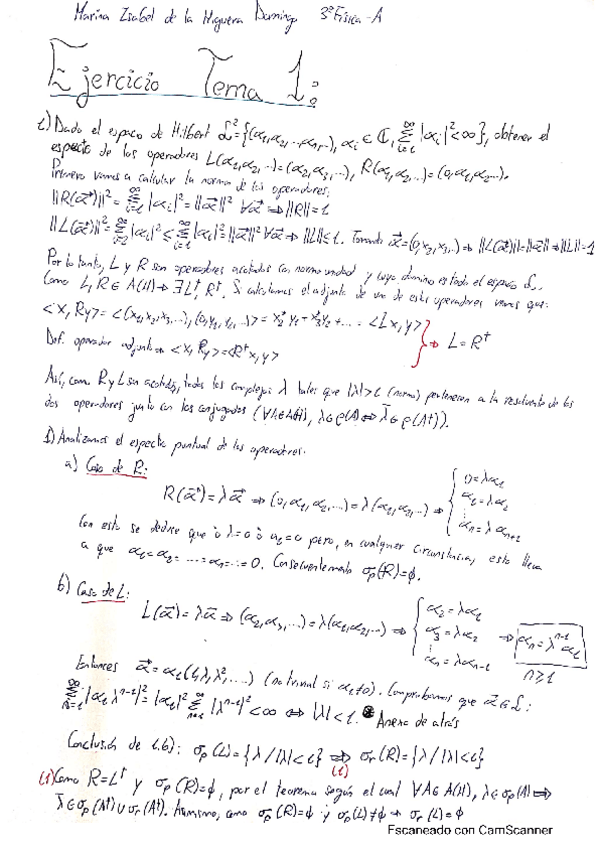 Marina Isabel de la Higuera Domingo 3º Física-A
Ejercicio Tema 1:
1) Dado el espacio de Hilbert L²={(α₁,α₂,...αₙ...), αᵢ∈ℂ, Σᵢ₌₁^∞ |αᵢ|²<∞}, obtener el
espectro de los operadores L(α₁,α₂,...)=(α₂,α₃,...), R(α₁,α₂,...)=(0,α₁,α₂...).
Primero vamos a calcular la norma de los operadores:
||R(α⃗)||² = Σᵢ₌₁^∞ |αᵢ|² = ||α⃗||² ∀α⃗ ⇒ ||R||=1
||L(α⃗)||² = Σᵢ₌₂^∞ |αᵢ|² ≤ Σᵢ₌₁^∞ |αᵢ|² = ||α⃗||² ∀α⃗ ⇒ ||L||≤1. Tomando α⃗=(0,α₂,α₃,...) ⇒ ||L(α⃗)||=||α⃗|| ⇒ ||L||=1
Por lo tanto, L y R son operadores acotados con norma unidad y cuyo dominio es todo el espacio L.
Como L,R ∈ A(H) ⇒ ∃L†,R†. Si calculamos el adjunto de uno de estos operadores vemos que:
<x,Ry> = <(x₁,x₂,x₃,...),(0,y₁,y₂,...)> = x₂*y₁+x₃*y₂+... = <Lx,y>
Def. operador adjunto ⇒ <x,Ry>=<R†x,y>
⇒ L=R†
Así, como R y L son acotados, todos los complejos λ tales que |λ|>1 (norma) pertenecen a la resolvente de los
dos operadores junto con los conjugados (∀A∈A(H), λ∈ρ(A) ⇔ λ̄∈ρ(A†)).
1) Analizamos el espectro puntual de los operadores:
a) Caso de R:
R(α⃗)=λα⃗ ⇒ (0,α₁,α₂,...)=λ(α₁,α₂,...) ⇒ { 0=λα₁
α₁=λα₂
⋮
αₙ=λαₙ₊₁
Con esto se deduce que ó λ=0 ó α₁=0 pero, en cualquier circunstancia, esto lleva
a que α₁=α₂=...=αₙ=...=0. Consecuentemente σₚ(R)=∅.
b) Caso de L:
L(α⃗)=λα⃗ ⇒ (α₂,α₃,...)=λ(α₁,α₂,...) ⇒ { α₂=λα₁
α₃=λα₂
⋮
αₙ=λαₙ₋₁
⇒ αₙ=λⁿ⁻¹α₁
n≥1
Entonces α⃗=α₁(1,λ,λ²,...) (no trivial si α₁≠0). Comprobamos que α⃗∈L:
Σₙ₌₁^∞ |α₁λⁿ⁻¹|²=|α₁|² Σₙ₌₁^∞ |λⁿ⁻¹|²<∞ ⇔ |λ|<1. Anexo detrás
Conclusión de 1.b): σₚ(L)={λ/|λ|<1} ⇒(1) σᵣ(R)={λ/|λ|<1}
(1) Como R=L† y σₚ(R)=∅, por el teorema según el cual ∀A∈A(H), λ∈σₚ(A) ⇒
λ̄∈σₚ(A†)∪σᵣ(A†). Asimismo, como σₚ(R)=∅ y σₚ(L)≠∅ ⇒ σᵣ(L)=∅
Escaneado con CamScanner